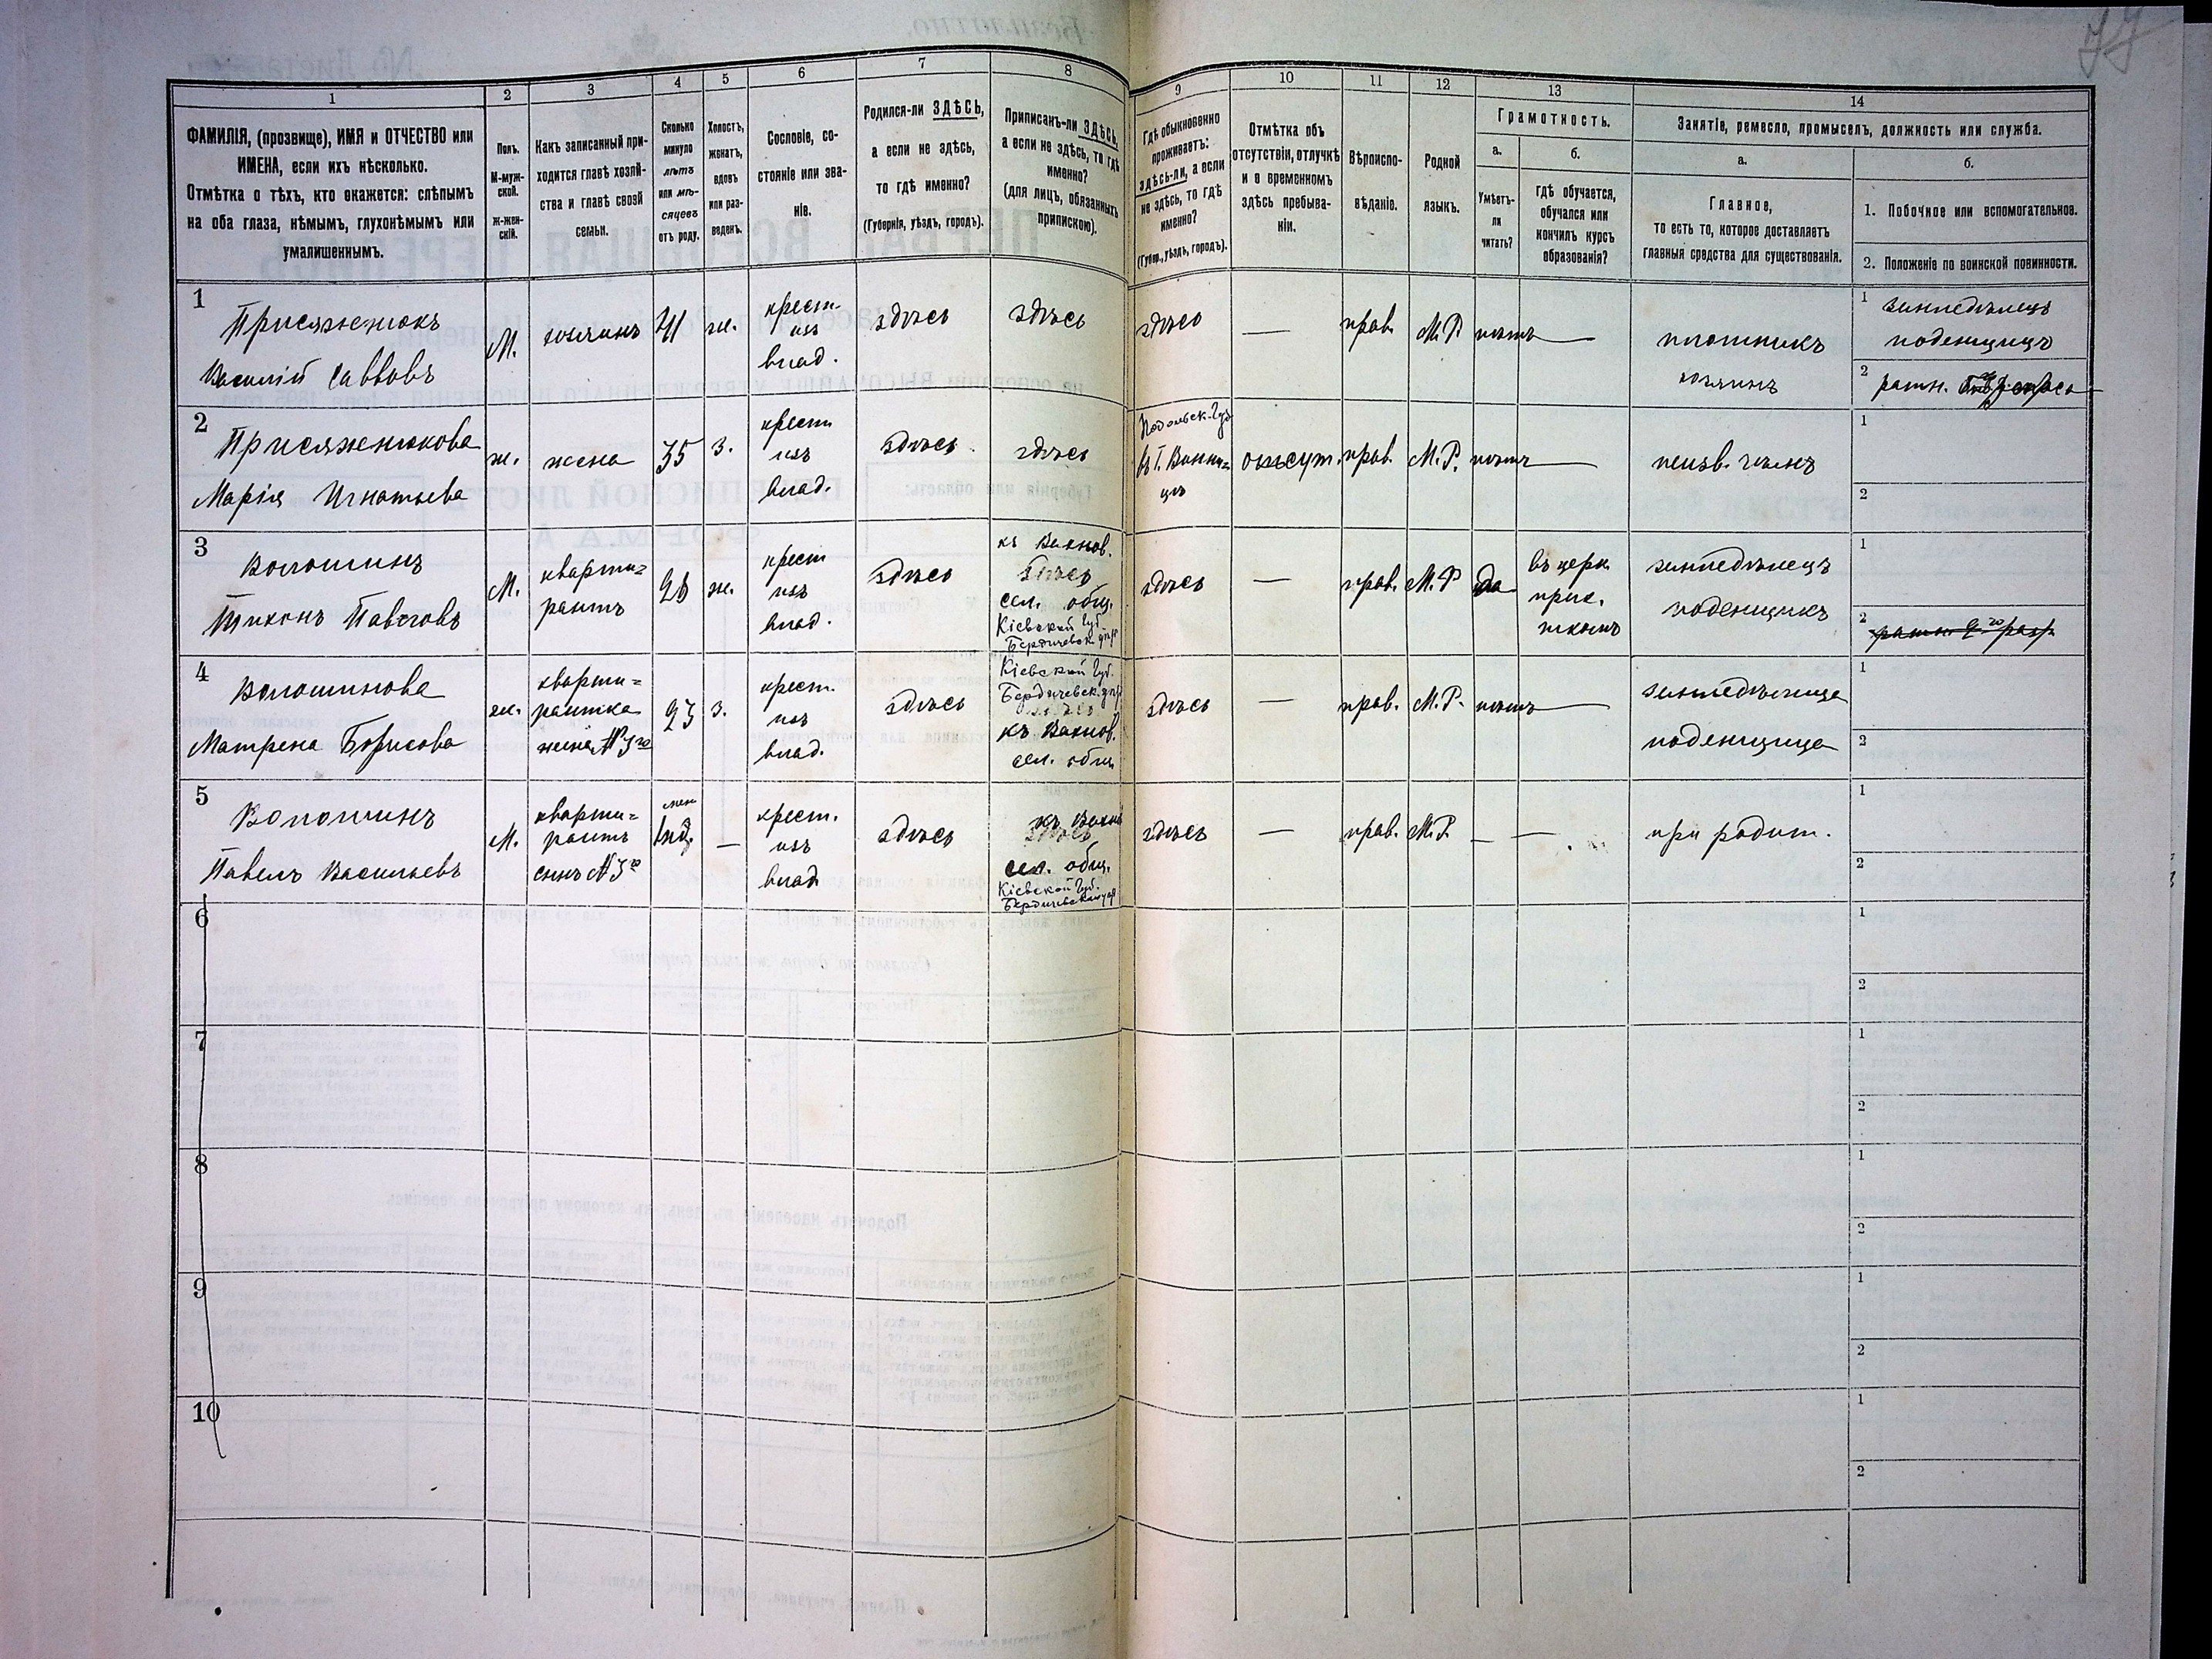 77
1
2
3
4
5
6
7
8
9
10
11
12
13
14
ФАМИЛІЯ, (прозвище), ИМЯ и ОТЧЕСТВО или
ИМЕНА, если ихъ нѣсколько.
Отмѣтка о тѣхъ, кто окажется: слѣпымъ
на оба глаза, нѣмымъ, глухонѣмымъ или
умалишеннымъ.
Полъ.
М-муж-
ской.
Ж-жен-
скій.
Какъ записанный при-
ходится главѣ хозяй-
ства и главѣ своей
семьи.
Сколько
минуло
лѣтъ
или мѣ-
сяцевъ
отъ роду.
Холостъ,
женатъ,
вдовъ
или раз-
веденъ.
Сословіе, со-
стояніе или зва-
ніе.
Родился-ли ЗДѢСЬ,
а если не здѣсь,
то гдѣ именно?
(Губернія, уѣздъ, городъ).
Приписанъ-ли ЗДѢСЬ,
а если не здѣсь, то гдѣ
именно?
(для лицъ, обязанныхъ
припискою).
Гдѣ обыкновенно
проживаетъ:
здѣсь-ли, а если
не здѣсь, то гдѣ
именно?
(Губер., уѣздъ, городъ).
Отмѣтка объ
отсутствіи, отлучкѣ
и о временномъ
здѣсь пребыва-
ніи.
Вѣроиспо-
вѣданіе.
Родной
языкъ.
Грамотность.
а.
б.
Умѣетъ-
ли
читать?
гдѣ обучается,
обучался или
кончилъ курсъ
образованія?
Занятіе, ремесло, промыселъ, должность или служба.
а.
б.
Главное,
то есть то, которое доставляетъ
главныя средства для существованія.
1. Побочное или вспомогательное.
2. Положеніе по воинской повинности.
1
Присяженюкъ
Василій Савовъ
М.
хозяинъ
41
ж.
крест.
изъ
влад.
здѣсь
здѣсь
здѣсь
—
прав.
М.Р.
нѣтъ —
плотникъ
хозяинъ
1
земледѣлецъ
поденщикъ
2
ратн.
2
Присяженюкова
Марія Игнатьева
ж.
жена
35
з.
крест.
изъ
влад.
здѣсь
здѣсь
Подольск. Губ.
въ Г. Винни=
цѣ
отсут.
прав.
М.Р.
нѣтъ —
1
2
3
Волошинъ
Тихонъ Павловъ
М.
кварти=
рантъ
26
ж.
крест
изъ
влад.
здѣсь
къ Вахнов.
здѣсь
сел. общ.
Кіевской Губ.
Бердичевск.
здѣсь
—
прав.
М.Р
да
въ церк.
прих.
школѣ
земледѣлецъ
поденщикъ
1
2
ратн. 2го разр.
4
Волошинова
Матрена Борисова
ж.
кварти=
рантка
жена №3го
23
з.
крест.
изъ
влад.
здѣсь
Кіевской Губ.
Бердичевск.
къ Вахнов.
сел. общ.
здѣсь
—
прав.
М.Р.
нѣтъ —
земледѣлица
поденщица
1
2
5
Волошинъ
Павелъ Васильевъ
М.
кварти=
рантъ
сынъ №3го
—
крест.
изъ
влад
здѣсь
здѣсь
сел. общ.
Кіевской Губ.
здѣсь
—
прав.
М.Р.
—
—
при родит.
1
2
6
1
2
7
1
2
8
1
2
9
1
2
10
1
2